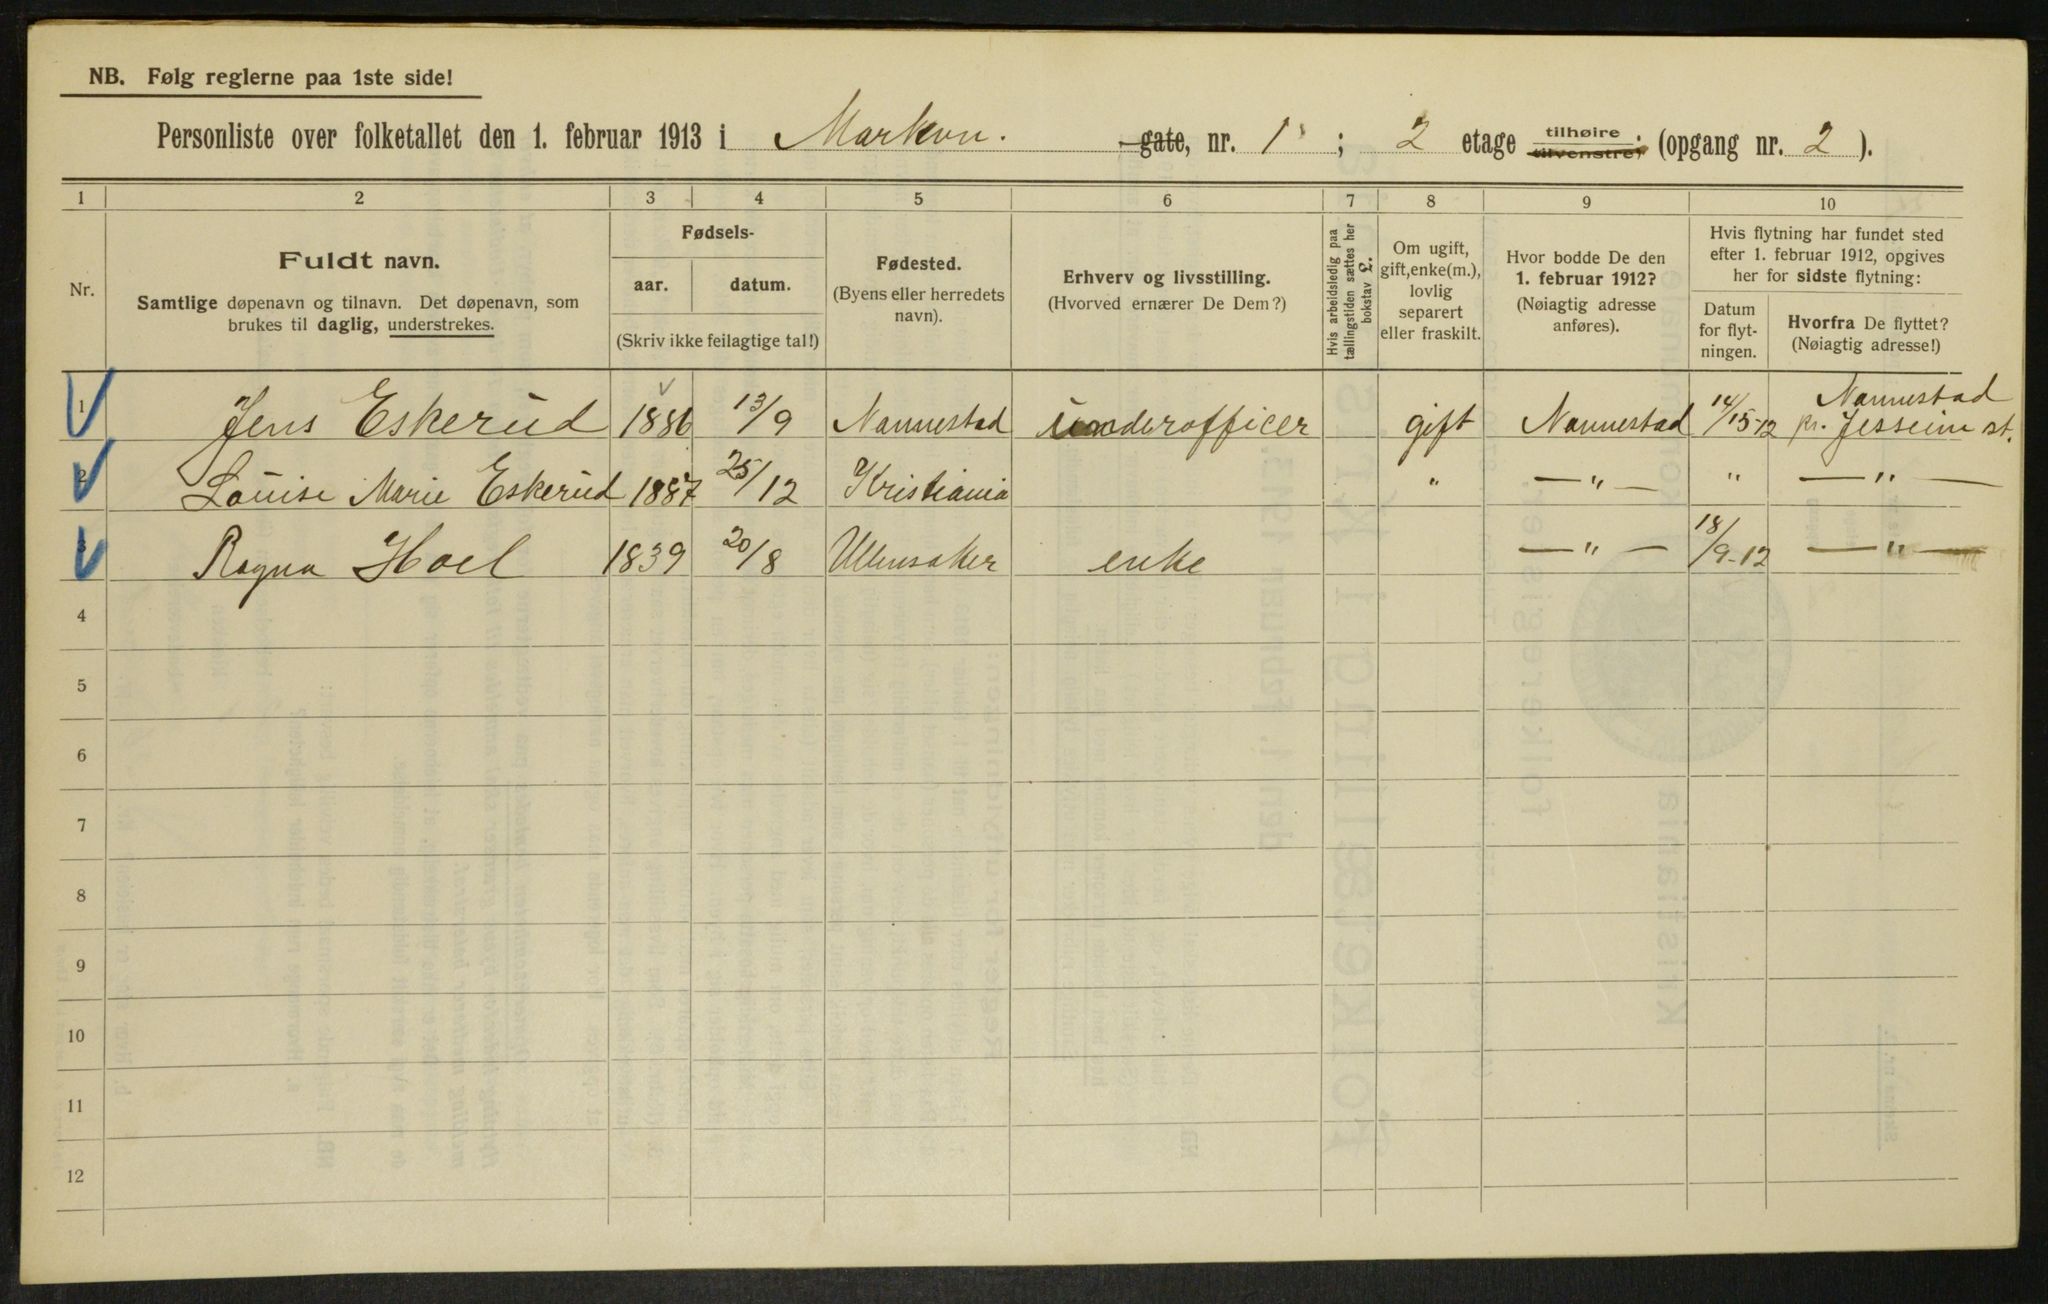 NB. Følg reglerne paa 1ste side!
Personliste over folketallet den 1. februar 1913 i Markvn. gate, nr. 1 ; 2 etage tilhøire tilvenstre; (opgang nr. 2 ).
1 2 3 4 5 6 7 8 9 10
Nr.
Fuldt navn.
Samtlige døpenavn og tilnavn. Det døpenavn, som
brukes til daglig, understrekes.
Fødsels-
aar. datum.
(Skriv ikke feilagtige tal!)
Fødested.
(Byens eller herredets
navn).
Erhverv og livsstilling.
(Hvorved ernærer De Dem?)
Hvis arbeidsledig paa
tællingstiden sættes her
bokstav L.
Om ugift,
gift, enke(m.),
lovlig
separert
eller fraskilt.
Hvor bodde De den
1. februar 1912?
(Nøiagtig adresse
anføres).
Hvis flytning har fundet sted
efter 1. februar 1912, opgives
her for sidste flytning:
Datum
for flyt-
ningen.
Hvorfra De flyttet?
(Nøiagtig adresse!)
1 Jens Eskerud 1886 13/9 Nannestad underofficer gift Nannestad Nannestad
pr. Jesseim st.
2 Louise Marie Eskerud 1887 25/12 Kristiania " — " — " — " —
3 Ragna Hoel 1839 20/8 Ullensaker enke — " — 18/9-12 — " —
4
5
6
7
8
9
10
11
12